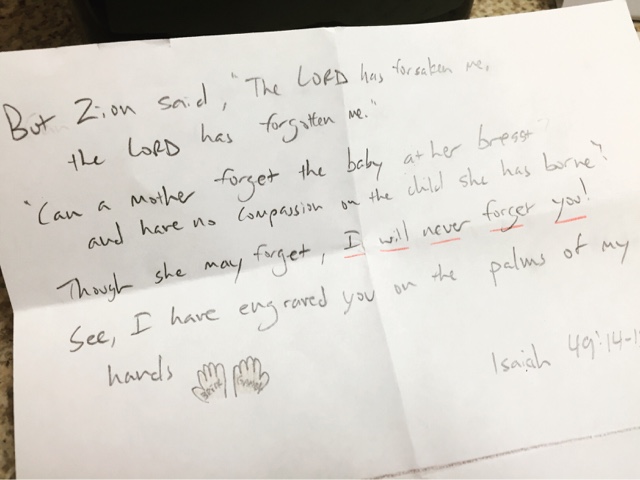 But Zion said, "The LORD has forsaken me,
the LORD has forgotten me."
"Can a mother forget the baby at her breast
and have no compassion on the child she has borne?
Though she may forget, I will never forget you!
See, I have engraved you on the palms of my
hands
Isaiah 49:14-1